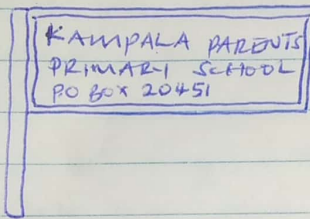 KAMPALA PARENTS
PRIMARY SCHOOL
P.O BOX 20451